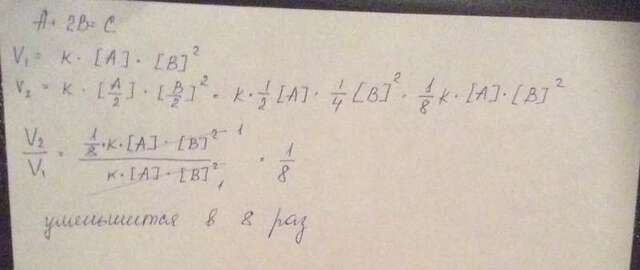 A+ 2B= C
V₁= K · [A] · [B]²
V₂= K · [A/2] · [B/2]² = K · 1/2 [A] · 1/4 [B]² = 1/8 K · [A] · [B]²
V₂/V₁ = 1/8 · K · [A] · [B]² 1 / K · [A] · [B]² 1 = 1/8
уменьшится в 8 раз